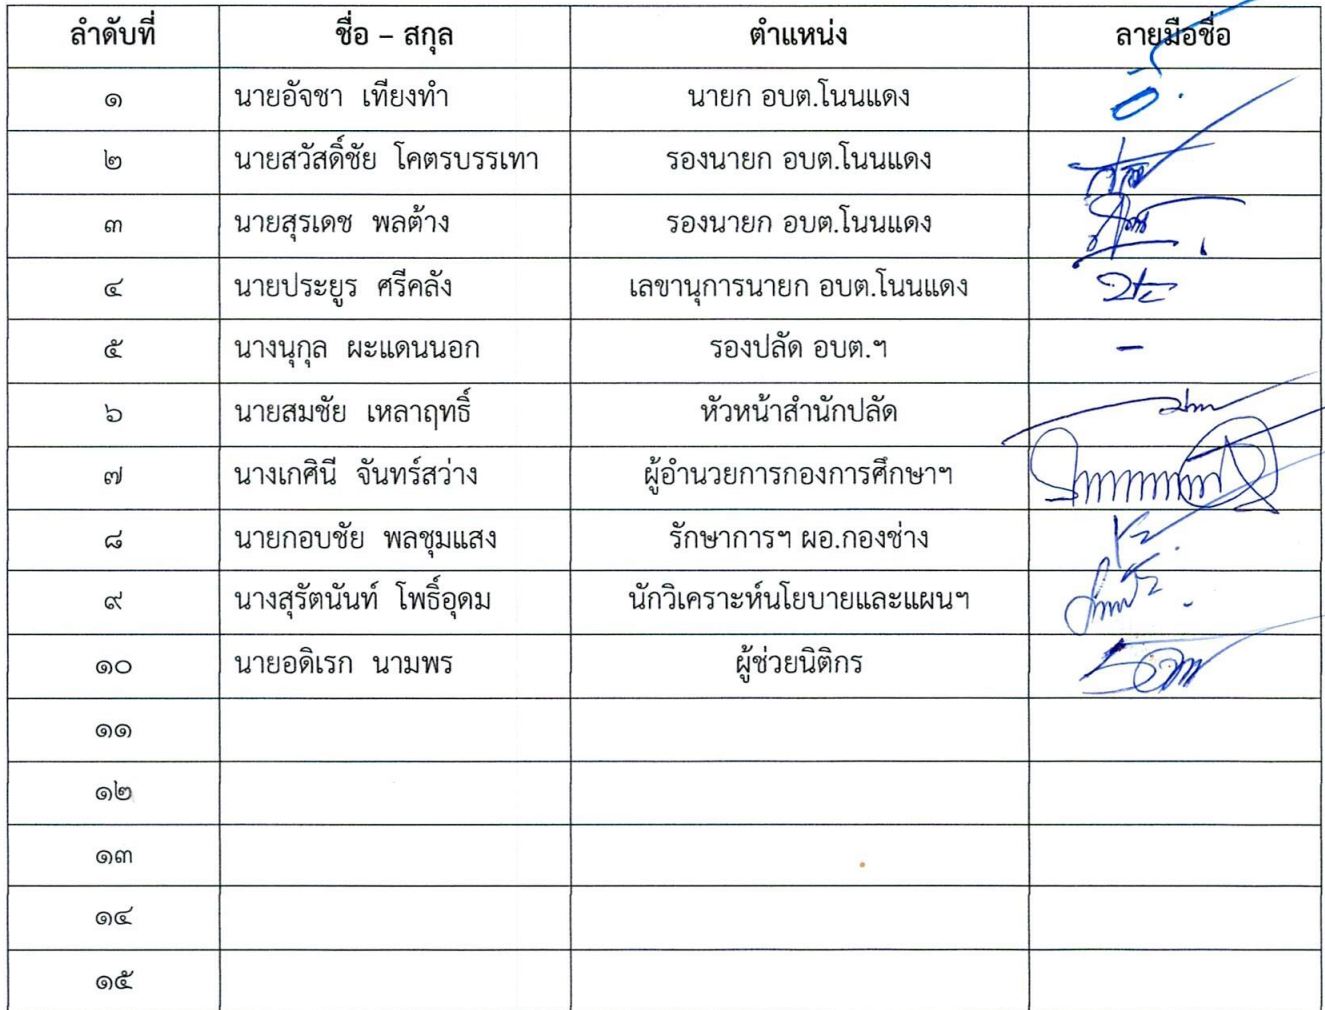 ลำดับที่ ชื่อ – สกุล ตำแหน่ง ลายมือชื่อ
๑ นายอัจชา เทียงทำ นายก อบต.โนนแดง
๒ นายสวัสดิ์ชัย โคตรบรรเทา รองนายก อบต.โนนแดง
๓ นายสุรเดช พลต้าง รองนายก อบต.โนนแดง
๔ นายประยูร ศรีคลัง เลขานุการนายก อบต.โนนแดง
๕ นางนุกุล ผะแดนนอก รองปลัด อบต.ฯ –
๖ นายสมชัย เหลาฤทธิ์ หัวหน้าสำนักปลัด
๗ นางเกศินี จันทร์สว่าง ผู้อำนวยการกองการศึกษาฯ
๘ นายกอบชัย พลชุมแสง รักษาการฯ ผอ.กองช่าง
๙ นางสุรัตนันท์ โพธิ์อุดม นักวิเคราะห์นโยบายและแผนฯ
๑๐ นายอดิเรก นามพร ผู้ช่วยนิติกร
๑๑
๑๒
๑๓
๑๔
๑๕